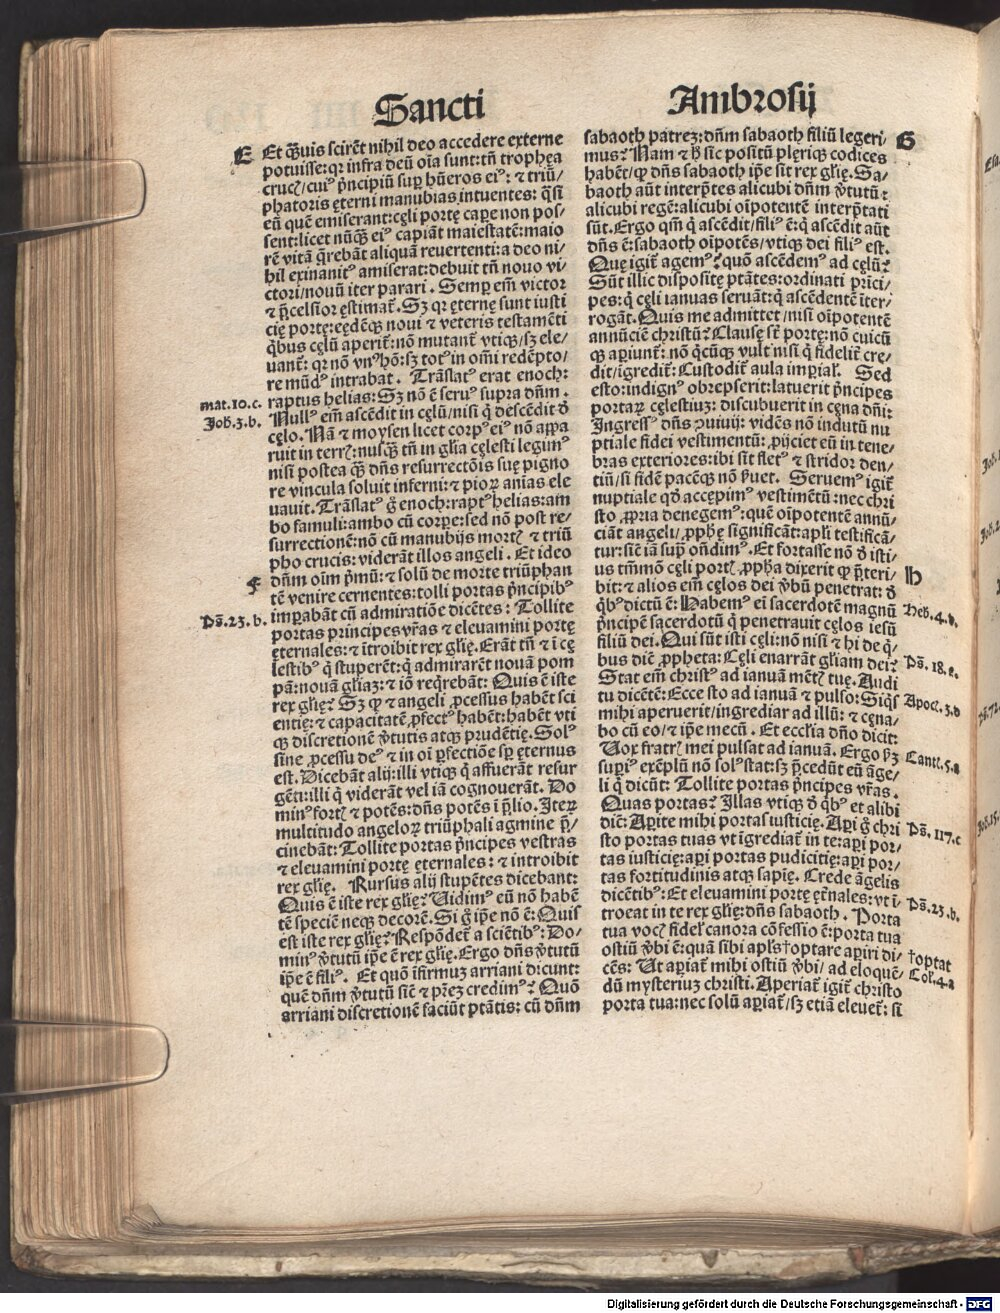 Sancti
Ambrosij
E
Et q̃uis scirẽt nihil deo accedere externe
potuisse: qr infra deũ oĩa sunt: tñ trophęa
crucꝭ/ cuiꝰ p̃ncipiũ suꝑ hũeros eiꝰ: ⁊ triũ/
phatoris ęterni manubias intuentes: q̃si
eũ quẽ emiserant: cęli portę caꝑe non pos/
sent: licet nũq̃ꝫ eiꝰ capiãt maiestatẽ: maio
rẽ vitã q̃rebãt aliquã reuertenti: a deo ni/
hil exinanitꝰ amiserat: debuit tñ nouo vi/
ctori/ nouũ iter parari. Semꝑ eñi victor
⁊ p̃celsior ęstimat̃. Sꝫ qr ęternę sunt iusti
cię portę: eędẽqꝫ noui ⁊ veteris testamẽti
q̃bus cęlũ aperit̃: nõ mutant̃ vtiqꝫ/ sꝫ ele/
uant̃: qr nõ vnꝰ hõ: sꝫ totꝰ in om̃i redẽpto/
re mũdꝰ intrabat. Trãslatꝰ erat enoch:
mat.10.c.
raptus helias: Sꝫ nõ ẽ seruꝰ supra dñm.
Joh̃.3.b.
Nullꝰ em̃ ascẽdit in cęlũ/ nisi q̃ descẽdit ð
cęlo. Nã ⁊ moysen licet corpꝰ eiꝰ nõ aꝑpa
ruit in terrꝭ: nusq̃ꝫ tñ in gl̃ia cęlesti legimꝰ
nisi postea q̃ꝫ dñs resurrectõis suę pigno
re vincula soluit inferni: ⁊ pioꝝ aĩas ele
uauit. Trãslatꝰ g̃ enoch: raptꝰ helias: am
bo famuli: ambo cũ corꝑe: sed nõ post re/
surrectionẽ: nõ cũ manubijs mortꝭ ⁊ triũ
pho crucis: viderãt illos angeli. Et ideo
F
dñm oĩm p̃mũ: ⁊ solũ de morte triũphan
tẽ venire cernentes: tolli portas p̃ncipibꝰ
Ps̃.23.b.
imꝑabãt cũ admiratiõe dicẽtes: Tollite
portas principes vr̃as ⁊ eleuamini portę
ęternales: ⁊ ĩtroibit rex gl̃ię. Erãt tñ ⁊ ĩ cę
lestibꝰ q̃ stuperẽt: q̃ admirarẽt nouã pom
pã: nouã gl̃iaꝫ: ⁊ iõ req̃rebãt: Quis ẽ iste
rex gl̃ię? Sꝫ qꝫ ⁊ angeli ꝓcessus habẽt sci
entię: ⁊ capacitatẽ ꝓfectꝰ habẽt: habẽt vti
qꝫ discretionẽ v̾tutis atqꝫ prudẽtię. Solꝰ
sine ꝓcessu deꝰ ⁊ in oĩ ꝑfectiõe sꝑ ęternus
est. Dicebãt alij: illi vtiqꝫ q̃ affuerãt resur
gẽti: illi q̃ viderãt vel iã cognouerãt. Do
minꝰ fortꝭ ⁊ potẽs: dñs potẽs ĩ p̃lio. Iteꝝ
multitudo angeloꝝ triũphali agmine p̃/
cinebãt: Tollite portas p̃ncipes vestras
⁊ eleuamini portę eternales: ⁊ introibit
rex gl̃ię. Rursus alij stupẽtes dicebant:
Quis ẽ iste rex gl̃ię? Uidimꝰ eũ nõ habẽ
tẽ speciẽ neqꝫ decorẽ. Si g̃ ip̃e nõ ẽ: Quis
est iste rex gl̃ię? Respõdet̃ a sciẽtibꝰ: Do/
minꝰ v̾tutũ ip̃e ẽ rex gl̃ię. Ergo dñs v̾tutũ
ip̃e ẽ filiꝰ. Et quõ ĩfirmuꝫ arriani dicunt:
quẽ dñm v̾tutũ sic̃ ⁊ pr̃eꝫ credimꝰ? Quõ
arriani discretionẽ faciũt ptãtis: cũ dñm
sabaoth patreꝫ: dñm sabaoth filiũ legeri/
G
mus? Nam ⁊ h̾ sic positũ plęriqꝫ codices
habẽt/ qꝫ dñs sabaoth ip̃e sit rex gl̃ię. Sa/
baoth aũt interp̃tes alicubi dñm v̾tutũ:
alicubi regẽ: alicubi oĩpotentẽ interp̃tati
sũt. Ergo qm̃ q̃ ascẽdit/ filiꝰ ẽ: q̃ ascẽdit aũt
dñs ẽ: sabaoth oĩpotẽs/ vtiqꝫ dei filiꝰ est.
Quę igit̃ agemꝰ? quõ ascẽdemꝰ ad cęlũ?
Sũt illic dispositę ptãtes: ordinati prĩci/
pes: q̃ cęli ianuas seruãt: q̃ ascẽdentẽ ĩter/
rogãt. Quis me admittet/ nisi oĩpotentẽ
annũciẽ christũ? Clausę sr̃t portę: nõ cuicũ
qꝫ aꝑiunt̃: nõ q̃cũqꝫ vult nisi q̃ fidelit̃ cre/
dit/ ingredit̃: Custodit̃ aula imꝑial̃. Sed
esto: indignꝰ obrepserit: latuerit p̃ncipes
portaꝝ cęlestiuꝫ: discubuerit in cęna dñi:
Ingressꝰ dñs ꝯuiuij: vidẽs nõ indutũ nu
ptiale fidei vestimentũ: ꝓijciet eũ in tene/
bras exteriores: ibi sit fletꝰ ⁊ stridor den/
tiũ/ si fidẽ pacẽqꝫ nõ s̾uet. Seruemꝰ igit̃
nuptiale qð accępimꝰ vestimẽtũ: nec chri
sto ꝓpria denegemꝰ: quẽ oĩpotentẽ annũ/
ciãt angeli/ ꝓphę significãt: apl̃i testificã/
tur: sic̃ iã supͣ oñdimꝰ. Et fortasse nõ ð isti/
us tm̃mõ cęli portꝭ ꝓpha dixerit qꝫ p̃teri/
H
bit: ⁊ alios em̃ cęlos dei v̾bũ penetrat: ð
q̃bꝰ dictũ ẽ: Habemꝰ eĩ sacerdotẽ magnũ
Heb.4.d.
p̃ncipẽ sacerdotũ q̃ penetrauit cęlos iesũ
filiũ dei. Qui sũt isti cęli: nõ nisi ⁊ hi de q̃/
bus dic̃ ꝓpheta: Cęli enarrãt gl̃iam dei?
Ps̃.18.a.
Stat em̃ christꝰ ad ianuã mẽtꝭ tuę. Audi
tu dicẽtẽ: Ecce sto ad ianuã ⁊ pulso: Siq̃s
Apocꝭ.3.d
mihi aperuerit/ ingrediar ad illũ: ⁊ cęna/
bo cũ eo/ ⁊ ip̃e mecũ. Et eccl̃ia dño dicit:
Uox fratrꝭ mei pulsat ad ianuã. Ergo s̾ꝫ
Cantꝭ.5.a
supiꝰ exẽplũ nõ solꝰ stat: sꝫ p̃cedũt eũ ãge/
li q̃ dicũt: Tollite portas p̃ncipes vr̃as.
Quas portas? Illas vtiqꝫ ð q̃bꝰ et alibi
dic̃: Aꝑite mihi portas iusticię. Aꝑi g̃ chri
Ps̃.117.c
sto portas tuas vt ĩgrediat̃ in te: aꝑi por/
tas iusticię: aꝑi portas pudicitię: aꝑi por/
tas fortitudinis atqꝫ sapię. Crede ãgelis
dicẽtibꝰ: Et eleuamini portę ęt̃nales: vt ĩ
Ps̃.23.b.
troeat in te rex gl̃ię: dñs sabaoth. Porta
tua vocꝭ fidel̃ canora cõfessio ẽ: porta tua
ostiũ v̾bi ẽ: quã sibi apl̃s †optare aꝑiri di/
†optat
cẽs: Ut aꝑiat̃ mihi ostiũ v̾bi/ ad eloquẽ/
Col̃.4.a
dũ mysteriuꝫ christi. Aperiat̃ igit̃ christo
porta tua: nec solũ aꝑiat̃/ sꝫ etiã eleuet̃: si
Digitalisierung gefördert durch die Deutsche Forschungsgemeinschaft - DFG